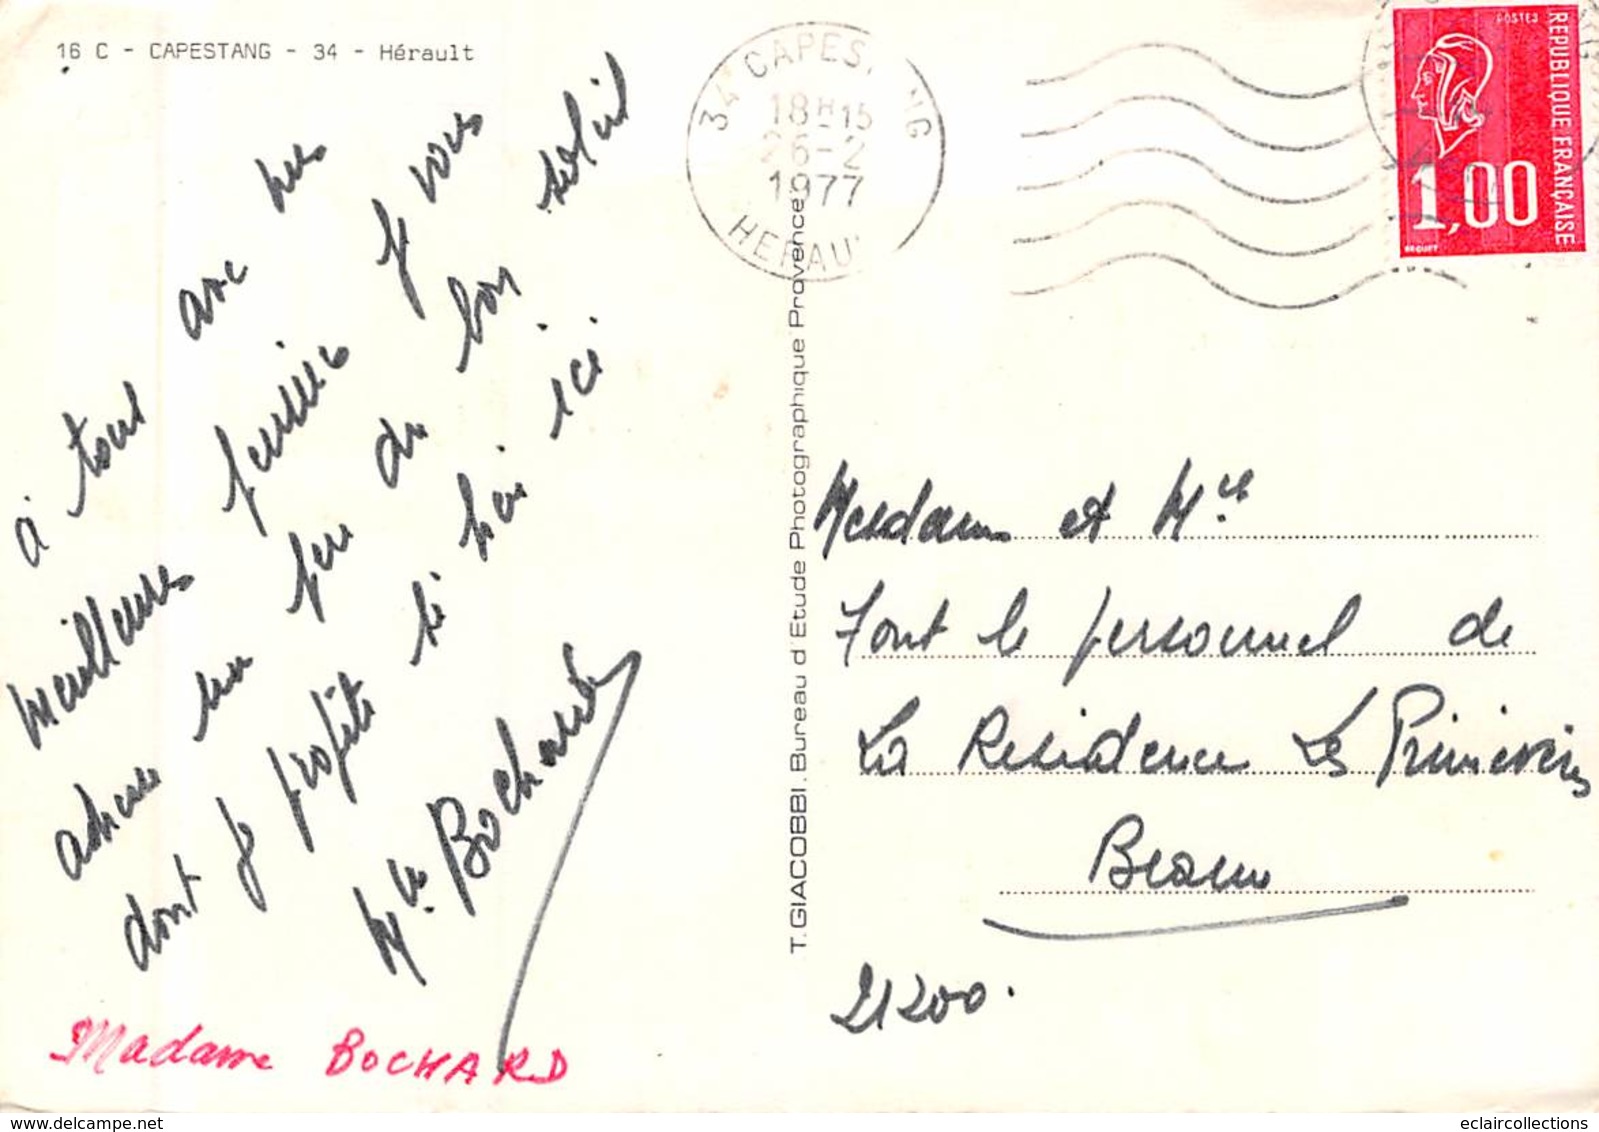 16 C - CAPESTANG - 34 - Hérault
à tous avec mes
meilleures pensées je vous
adresse un peu du bon soleil
dont je profite si bien ici
Mlle Bochard
Madame BOCHARD
T. GIACOBBI. Bureau d'Etude Photographique Provence
34 CAPES NG
18H15
26-2
1977
HERAU
POSTES
REPUBLIQUE FRANÇAISE
1,00
BEQUET
Mesdames et Mlle
Tout le personnel de
La Residence Les Primevères
Beaune
21200.
eclaircollections